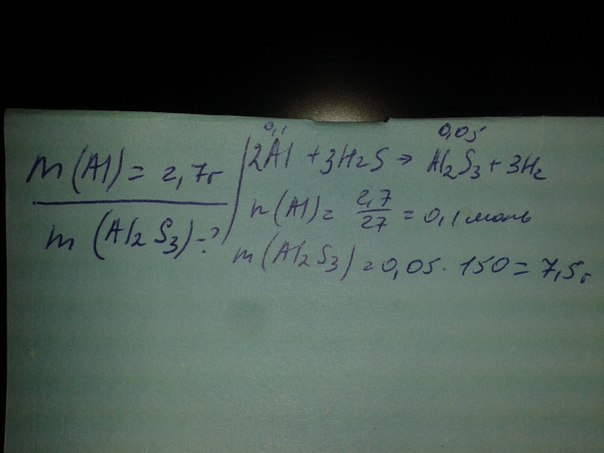 m(Al) = 2,7г
m(Al2S3)-?
0,1 0,05
2Al + 3H2S → Al2S3 + 3H2
n(Al) = 2,7/27 = 0,1 моль
m(Al2S3) = 0,05 · 150 = 7,5г